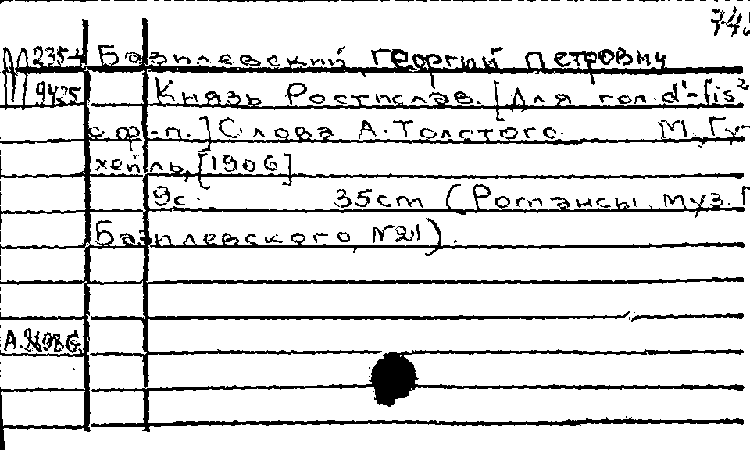 745
М 235-4 Базилевский, Георгий Петрович
9425 Князь Ростислав. [Для гол. d'-fis²
с ф-п.] Слова А. Толстого. М., Гу-
хейль, [1906]
9с. 35cm (Романсы муз. Г.
Базилевского, №21).